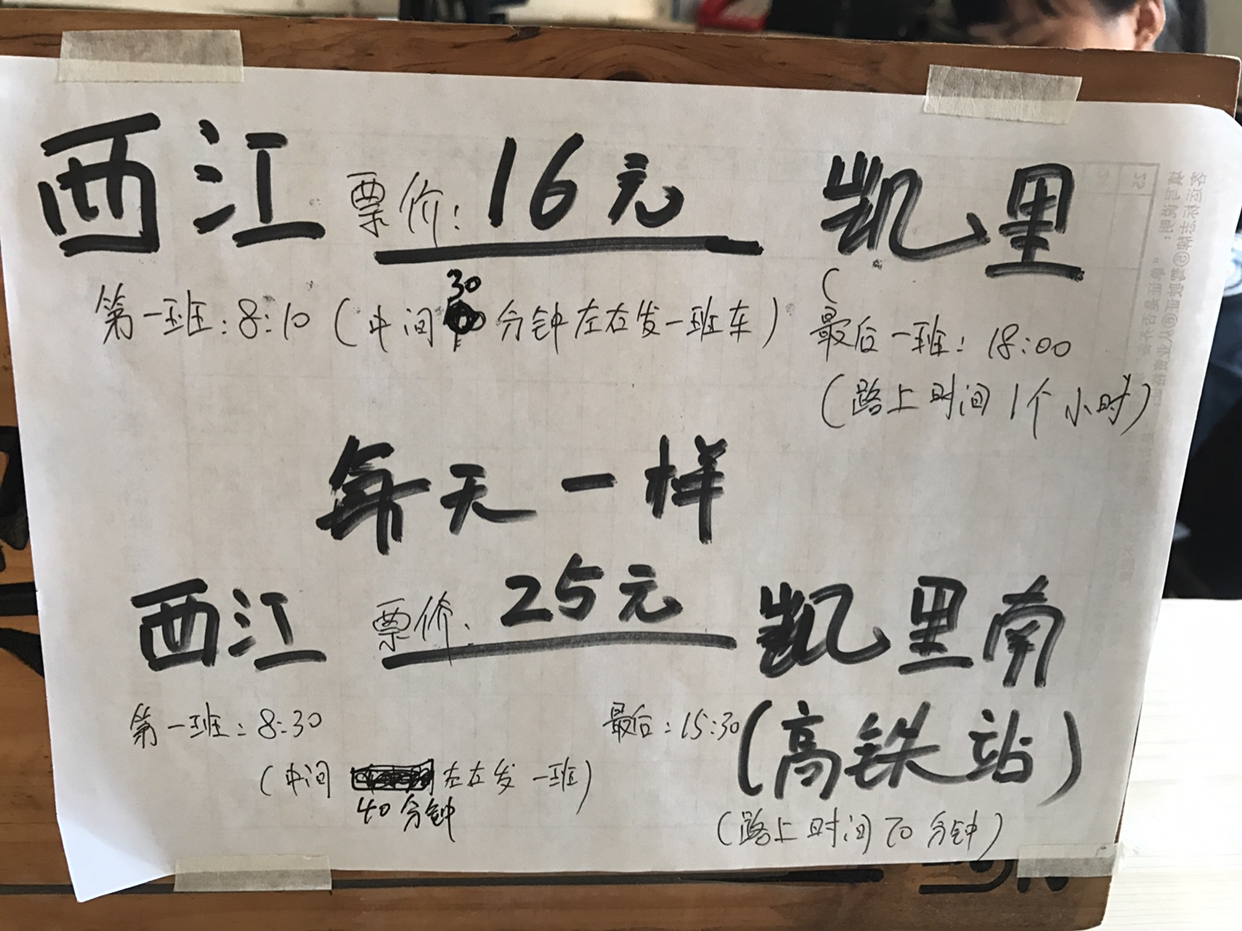 西江 票价: 16元 凯里
第一班: 8:10 (中间30分钟左右发一班车) 最后一班: 18:00
(路上时间1个小时)
每天一样
西江 票价: 25元 凯里南
第一班: 8:30 最后: 15:30 (高铁站)
(中间40分钟左右发一班)
(路上时间70分钟)